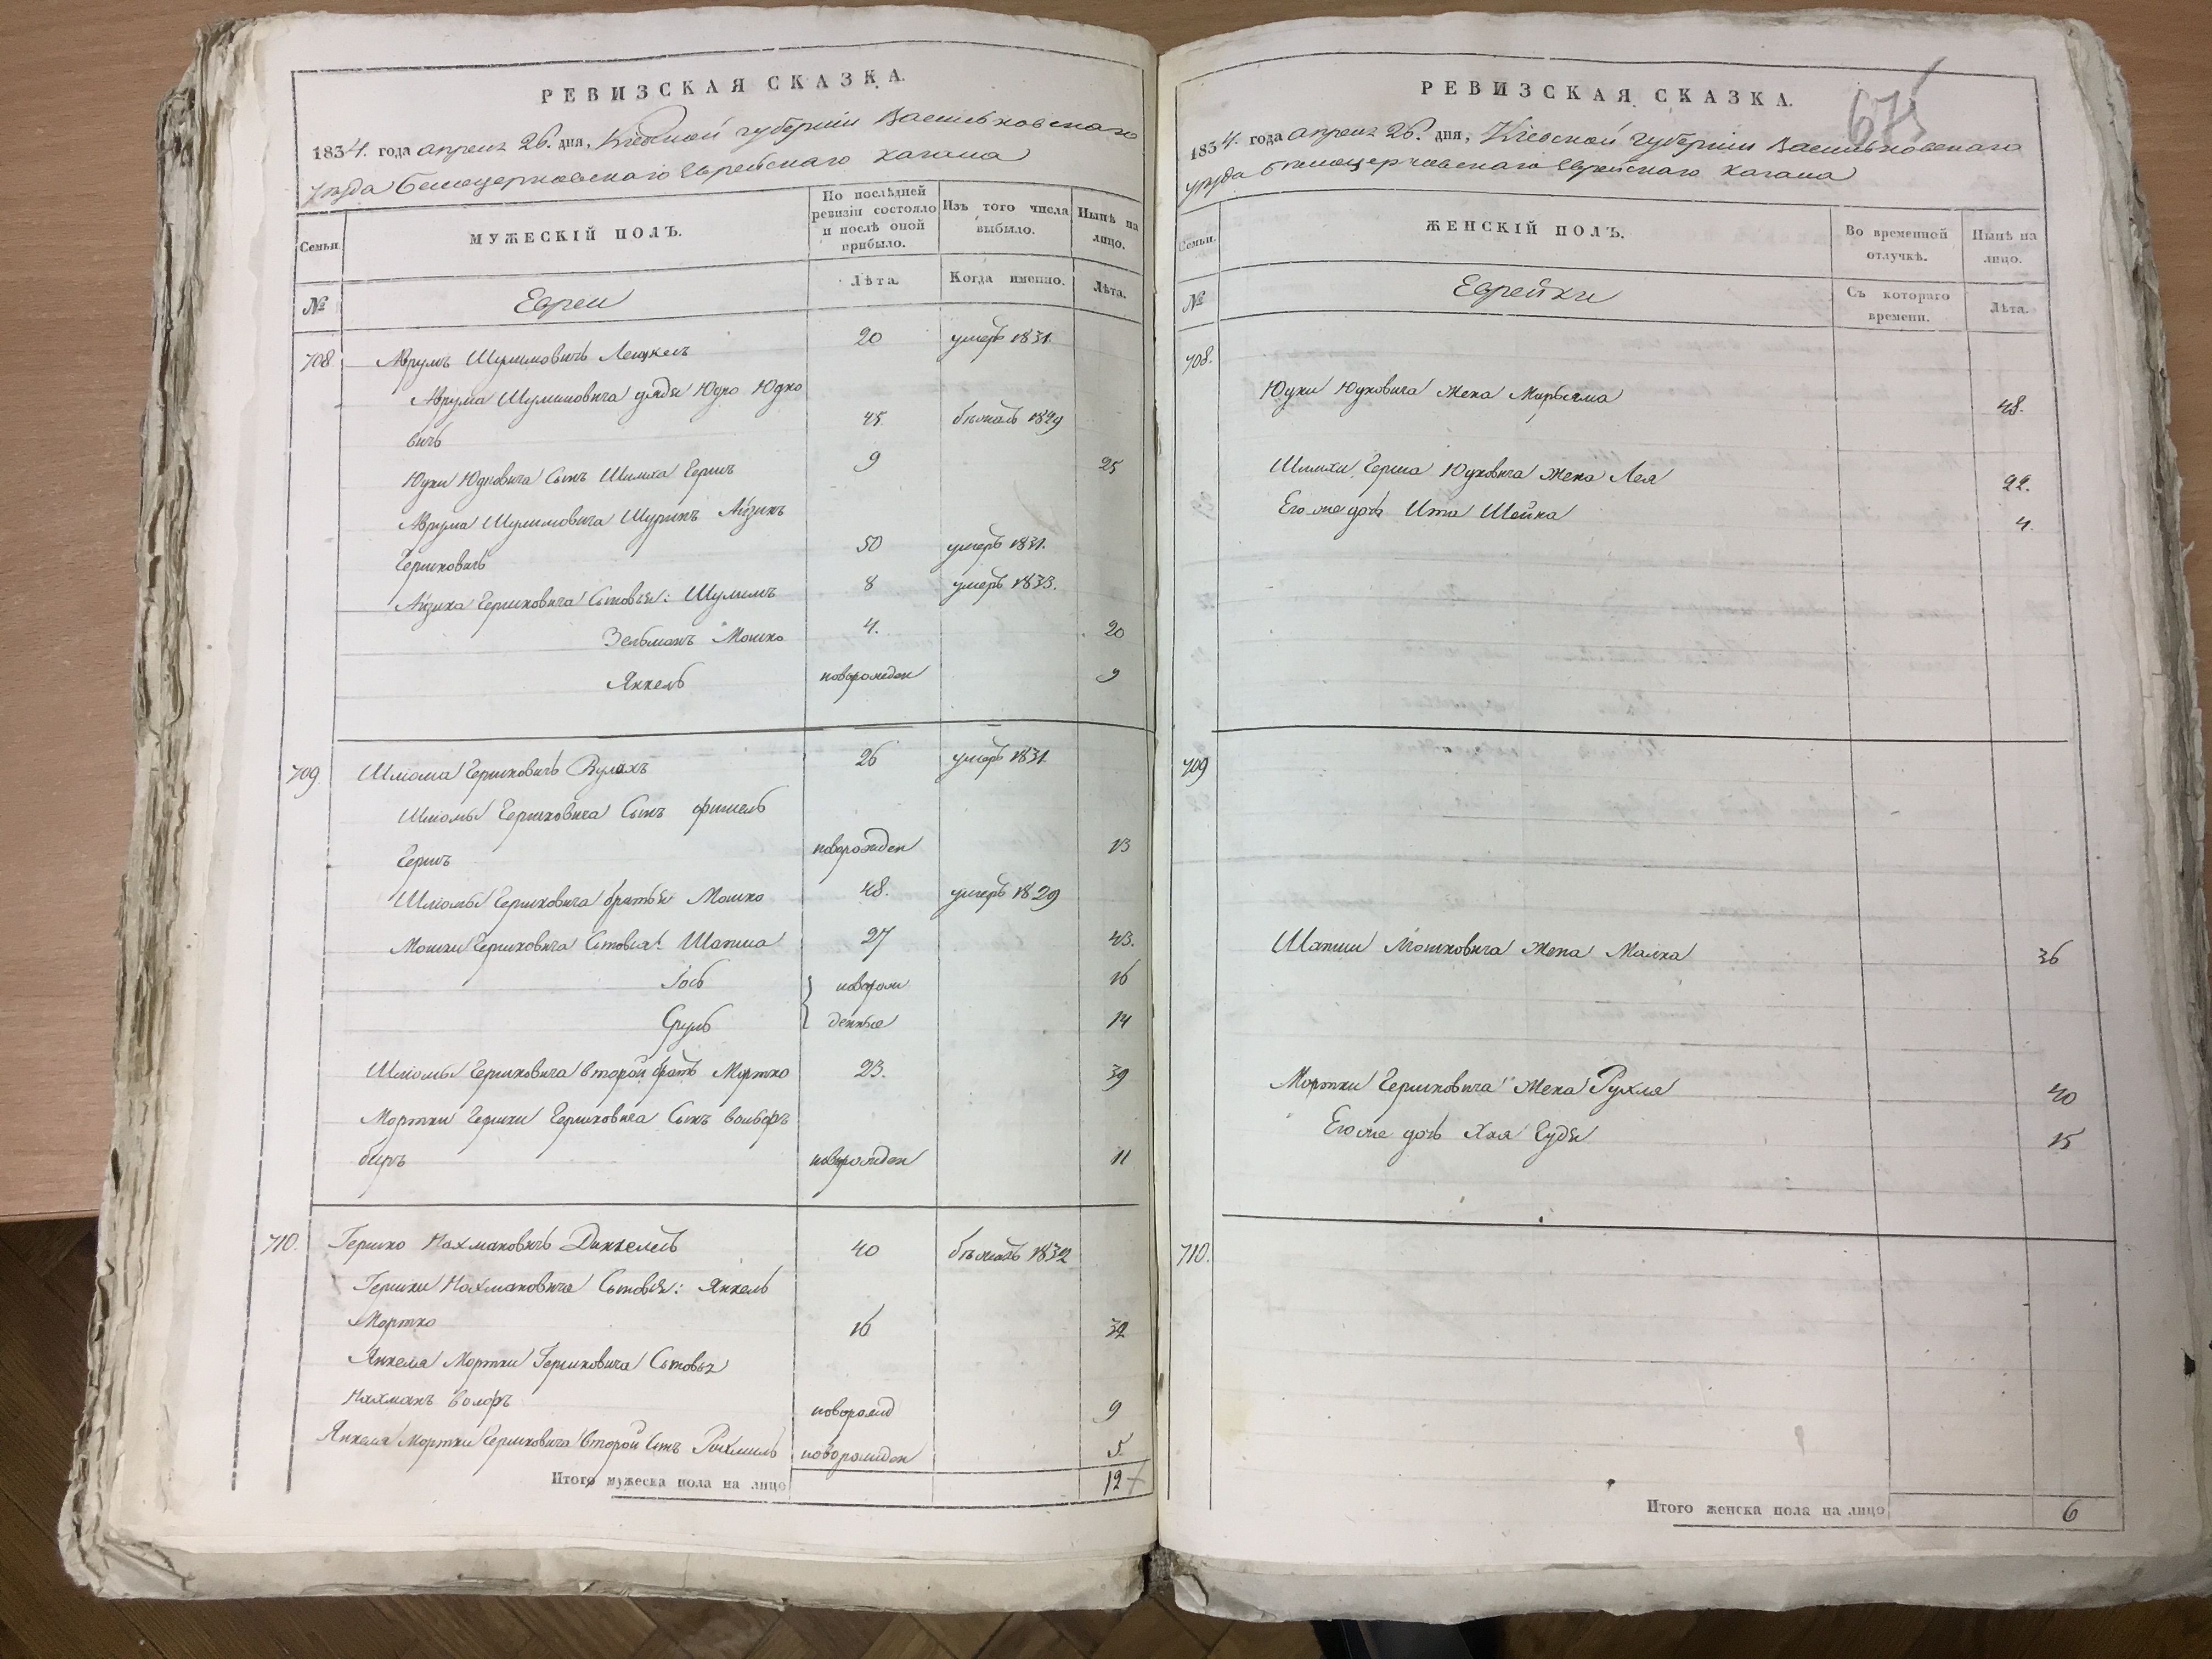 РЕВИЗСКАЯ СКАЗКА.
1834. года апреля 26. дня, Кіевской губерніи Васильковскаго
уезда Белоцерковскаго Еврейскаго Кагала
Семьи
МУЖЕСКІЙ ПОЛЪ.
По послѣдней ревизіи состояло и послѣ оной прибыло.
Изъ того числа выбыло.
Нынѣ на лицо.
№
Евреи
Лѣта.
Когда именно.
Лѣта.
708 Аврумъ Шулимовичъ 20 умеръ 1831.
Аврума Шулимовича дядя Юдко Юдко
вичъ 45. бѣжалъ 1829
Юдки Юдковича Сынъ Шимха Гершъ 9 25
Аврума Шулимовича Шуринъ Айзикъ
Гершковичъ 50 умеръ 1831.
Айзика Гершковича Сыновья: Шулимъ 8 умеръ 1833.
Зельманъ Мошко 4. 20
Янкель новорожден 9
709. Шліома Гершковичъ Вулахъ 26 умеръ 1831
Шліомы Гершковича Сынъ Фишель
Гершъ новорожден 13
Шліомы Гершковича братья Мошко 48. умеръ 1829
Мошки Гершковича Сыновья: Шапша 27 43.
Іось новорож 16
Сруль денные 14
Шліомы Гершковича второй братъ Мортко 23. 39
Мортки Гершки Гершковича Сынъ Вольфъ
беръ новорожден 11
710. Гершко Нахмановичъ Динкель 40 бѣжалъ 1832
Гершки Нахмановича Сыновья: Янкель
Мортко 16 32
Янкеля Мортки Гершковича Сыновья
Нахманъ Волфъ новорожд 9
Янкеля Мортки Гершковича второй Сынъ Рахмиль новорожден 5.
Итого мужеска пола на лицо 12
675
РЕВИЗСКАЯ СКАЗКА.
1834. года апреля 26. дня, Кіевской губерніи Васильковскаго
уезда Белоцерковскаго Еврейскаго Кагала
Семьи.
ЖЕНСКІЙ ПОЛЪ.
Во временной отлучкѣ.
Нынѣ на лицо.
№
Еврейки
Съ котораго времени.
Лѣта.
708.
Юдки Юдковича жена Марьяма 48.
Шимхи Герша Юдковича жена Лея 22.
Его же дочь Ита Шейна 4.
709
Шапши Мошковича жена Малка 36
Мортки Гершковича жена Рухля 40
Его же дочь Хая Гудя 15
710.
Итого женска пола на лицо 6